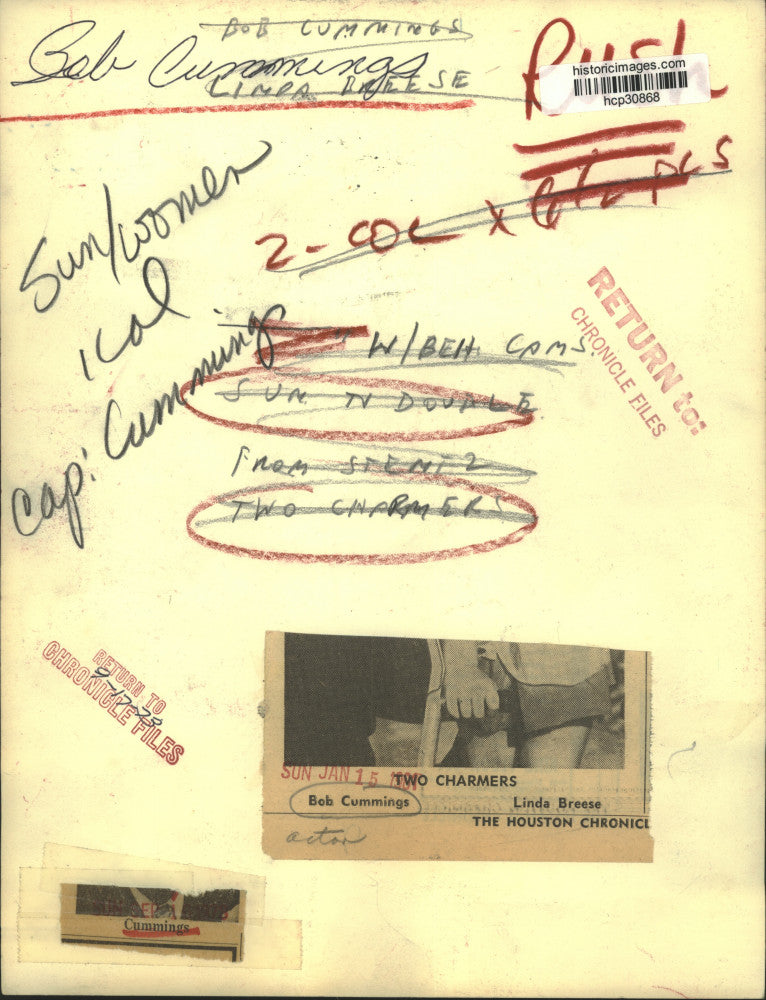 BOB CUMMINGS
Bob Cummings
LINDA BREESE
Rush
historicimages.com
hcp30868
2-COL x 6½ PLS
Sun/women
1col
cap: Cummings
W/BEH CAMS.
SUN TV DOUBLE
FROM STEMI 2
TWO CHARMERS
RETURN to:
CHRONICLE FILES
RETURN TO
9-17-73
CHRONICLE FILES
SUN JAN 15
TWO CHARMERS
Bob Cummings Linda Breese
THE HOUSTON CHRONICL
actor
SUN SEP
Cummings